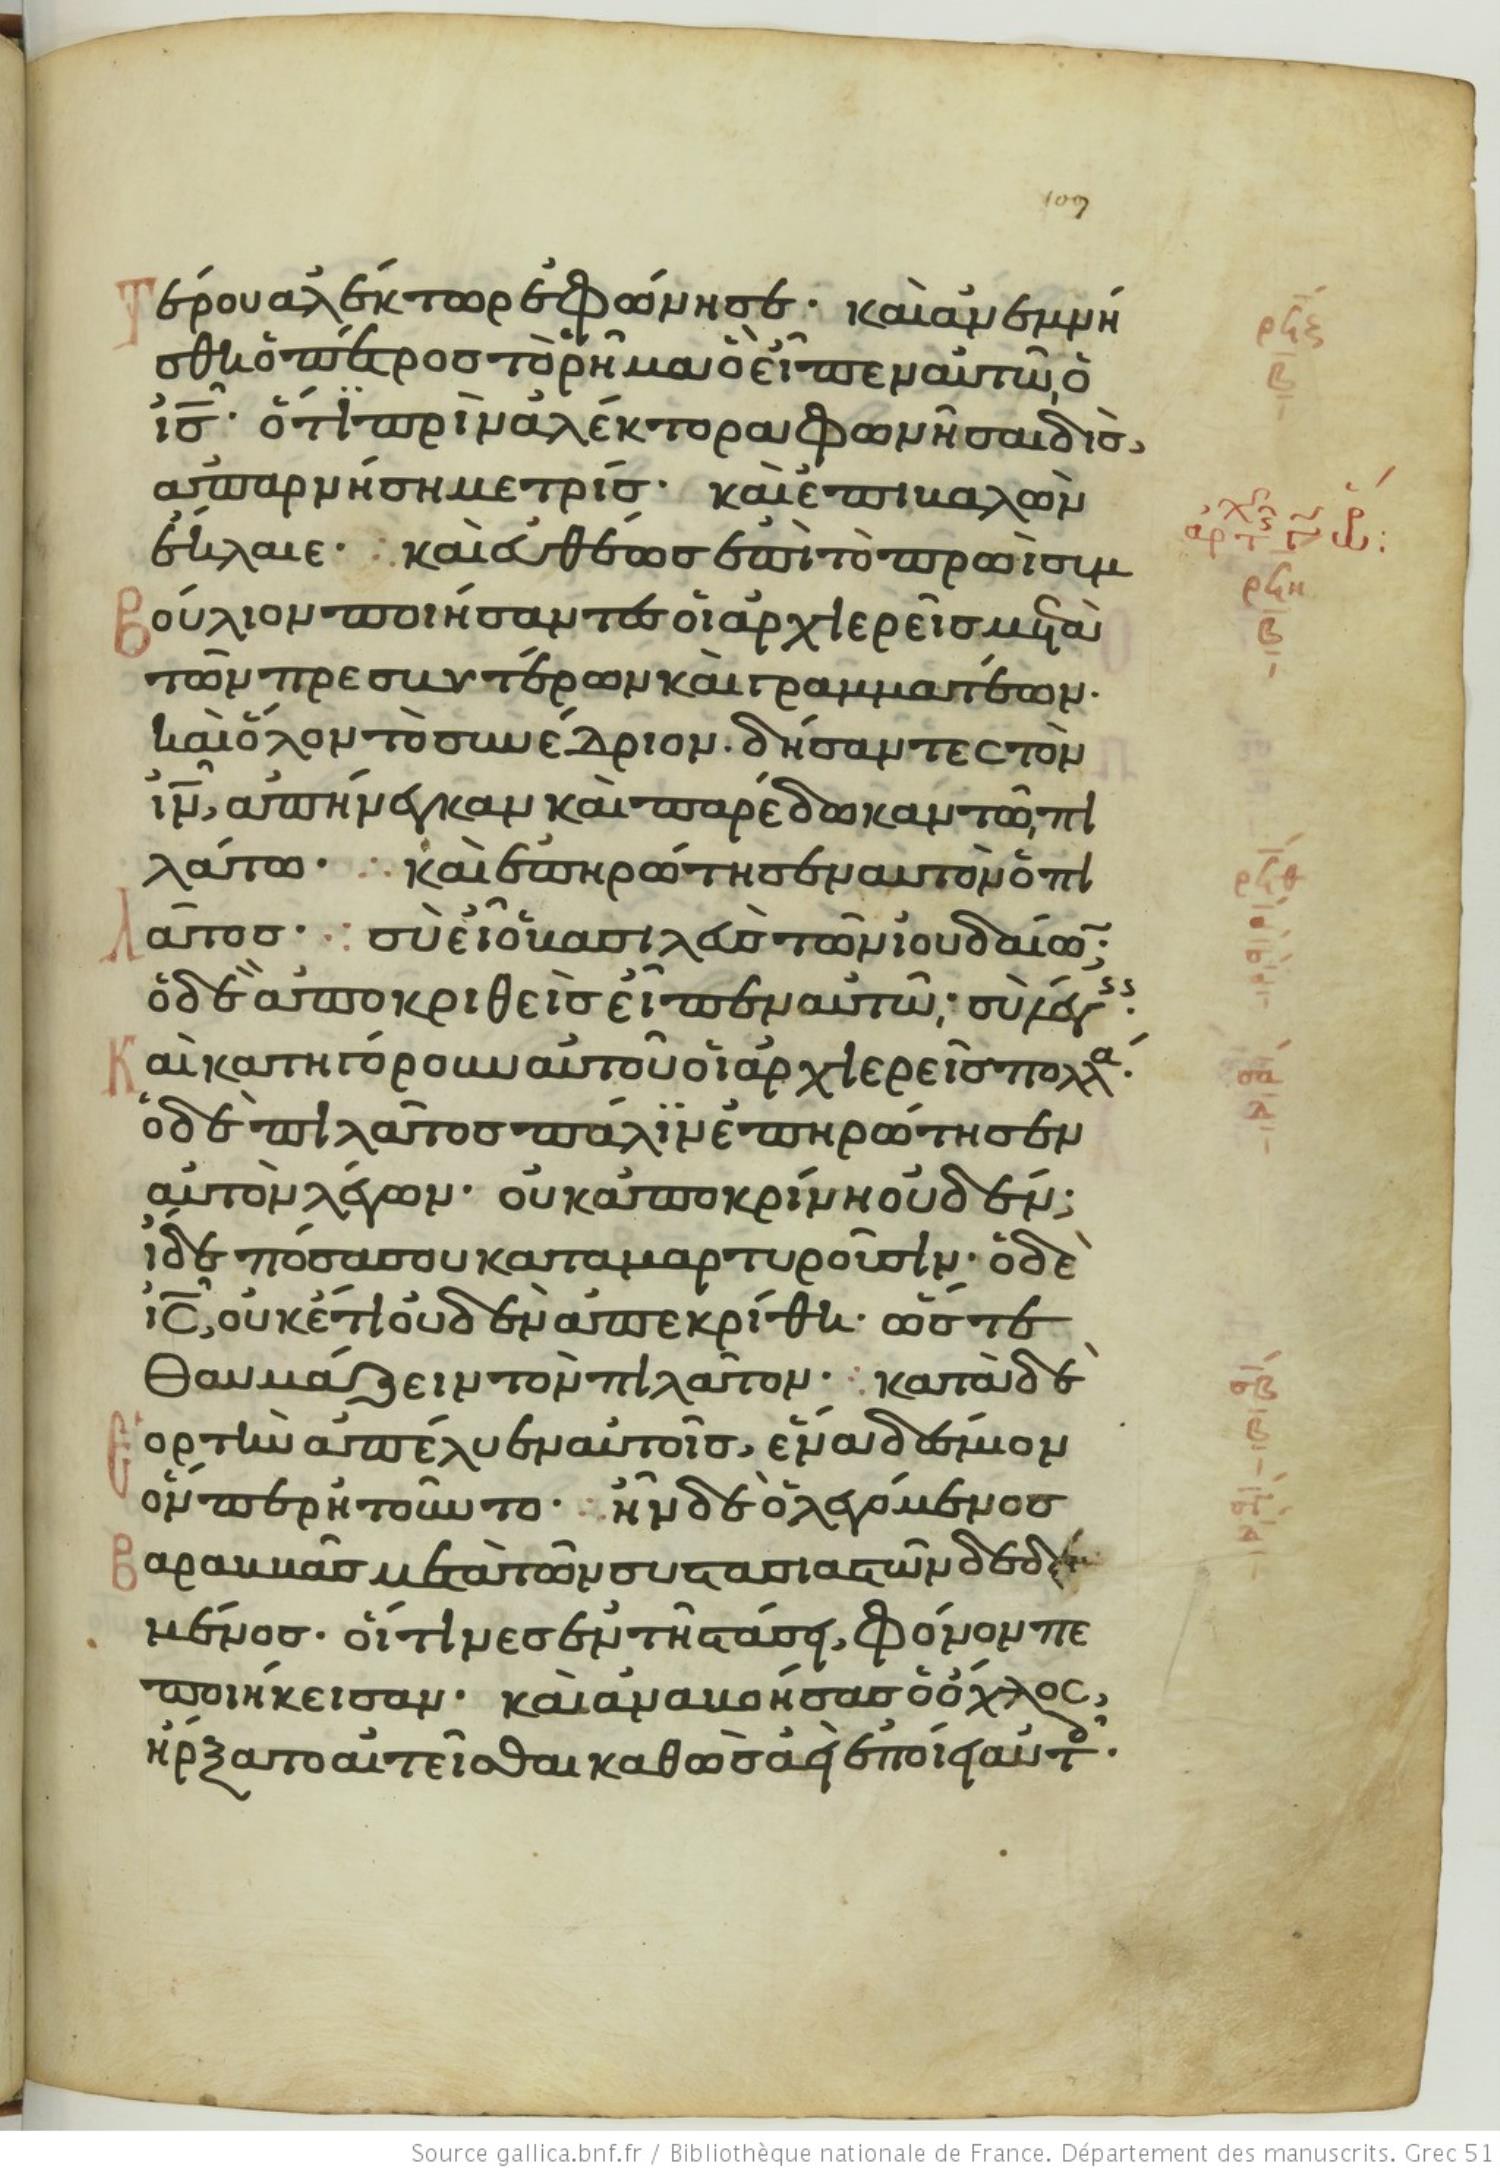 109
τέρου ἀλέκτωρ ἐφώνησε· καὶ ἀνεμνή
σθη ὁ πέτρος τὸ ῥῆμα ὃ εἶπεν αὐτῶ ὁ
ἰς̅· ὅτι πρὶν ἀλέκτορα φωνῆσαι δὶς,
ἀπαρνήση με τρίς· καὶ ἐπιβαλὼν
ἔκλαιε· καὶ εὐθέως ἐπὶ τὸ πρωῒ συμ
βούλιον ποιήσαντες οἱ ἀρχιερεῖς μετὰ
τῶν πρεσβυτέρων καὶ γραμματέων·
καὶ ὅλον τὸ συνέδριον· δήσαντες τὸν
ἰν̅, ἀπήνεγκαν καὶ παρέδωκαν τῶ πι
λάτω· καὶ ἐπηρώτησεν αὐτὸν ὁ πι
λᾶτος· σὺ εἶ ὁ βασιλεὺς τῶν ἰουδαίω̅;
ὁ δὲ ἀποκριθεὶς εἶπεν αὐτῶ· σὺ λέγεις·
καὶ κατηγόρουν αὐτοῦ οἱ ἀρχιερεῖς πολλά·
ὁ δὲ πιλᾶτος πάλϊν ἐπηρώτησεν
αὐτὸν λέγων· οὐκ ἀποκρίνη οὐδέν;
ἴδε πόσα σου καταμαρτυροῦσιν· ὁ δὲ
ἰς̅, οὐκέτι οὐδὲν ἀπεκρίθη· ὥστε
θαυμάζειν τὸν πιλᾶτον· κατὰ δὲ
ἑορτὴν ἀπέλυεν αὐτοῖς, ἕνα δέσμιον
ὅνπερ ἠτοῦντο· ἦν δὲ ὁ λεγόμενος
βαραββᾶς μετὰ τῶν συστασιαστῶν δεδε
μένος· οἵτινες ἐν τῆ στάσει, φόνον πε
ποιήκεισαν· καὶ ἀναβοήσας ὁ ὄχλος,
ἤρξατο αἰτεῖσθαι καθὼς ἀεὶ ἐποίει αὐτοῖς·
Source gallica.bnf.fr / Bibliothèque nationale de France. Département des manuscrits. Grec 51